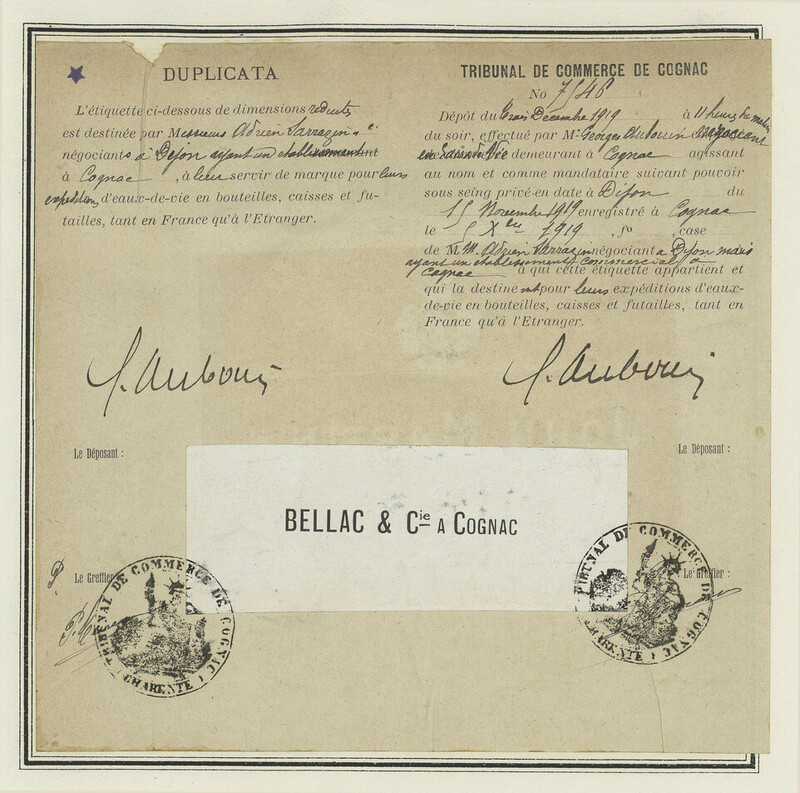 DUPLICATA
L'étiquette ci-dessous de dimensions réduites
est destinée par Messieurs Adrien Sarrazin & Cie
négociants à Dijon ayant un établissement
à Cognac, à leur servir de marque pour leurs
expéditions d'eaux-de-vie en bouteilles, caisses et fu-
tailles, tant en France qu'à l'Etranger.
G. Aubouin
Le Déposant :
P. Le Greffier :
TRIBUNAL DE COMMERCE DE COGNAC
No 7546
Dépôt du trois Décembre 1919 à 11 heures du matin
du soir, effectué par M. Georges Aubouin négociant
en demeurant à Cognac agissant
au nom et comme mandataire suivant pouvoir
sous seing privé en date à Dijon du
15 Novembre 1919 enregistré à Cognac
le 5 Xbre 1919, fo , case
de M.M. Adrien Sarrazin négociant à Dijon mais
ayant un établissement commercial à
Cognac à qui cette étiquette appartient et
qui la destinent pour leurs expéditions d'eaux-
de-vie en bouteilles, caisses et futailles, tant en
France qu'à l'Etranger.
G. Aubouin
Le Déposant :
Le Greffier :
BELLAC & Cie A COGNAC
TRIBUNAL DE COMMERCE DE COGNAC
CHARENTE
TRIBUNAL DE COMMERCE DE COGNAC
CHARENTE